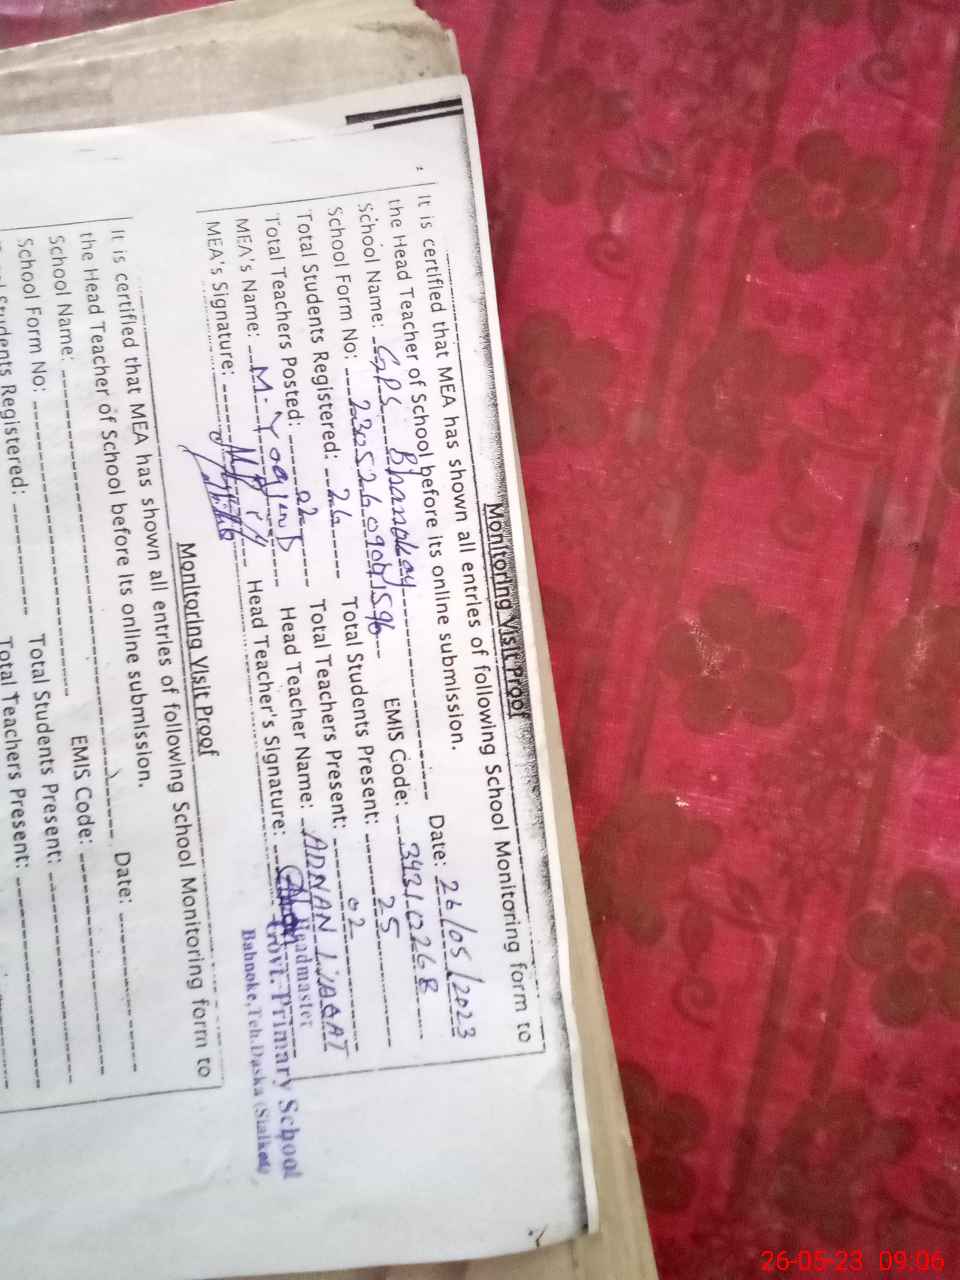 Monitoring Visit Proof
It is certified that MEA has shown all entries of following School Monitoring form to
the Head Teacher of School before its online submission.
School Name: GPS Bhanokay Date: 26/05/2023
School Form No: EMIS Code: 34310268
Total Students Registered: 26 Total Students Present: 25
Total Teachers Posted: 02 Total Teachers Present: 02
MEA's Name: M. Head Teacher Name: ADNAN LIAQAT
MEA's Signature: Head Teacher's Signature:
Headmaster
Govt. Primary School
Bahnoke, Teh. Daska (Sialkot)
Monitoring Visit Proof
It is certified that MEA has shown all entries of following School Monitoring form to
the Head Teacher of School before its online submission.
School Name: Date:
School Form No: EMIS Code:
Students Registered: Total Students Present:
Total Teachers Present:
26-05-23 09:06